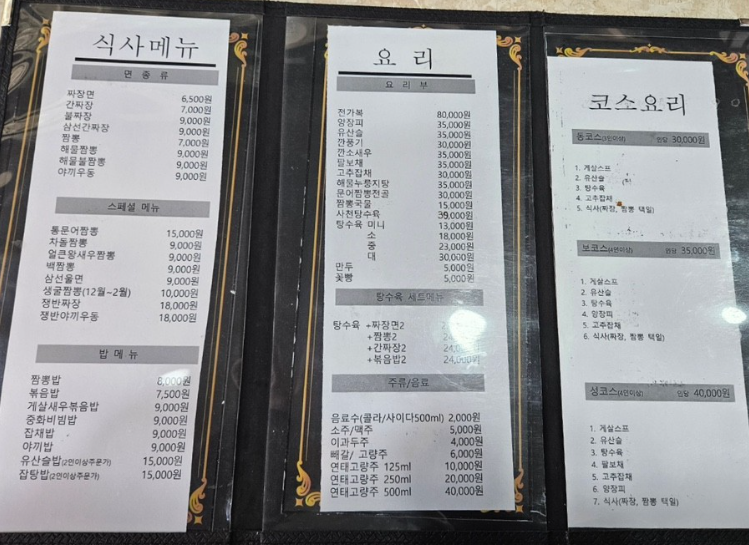 식사메뉴
면 종 류
짜장면 6,500원
간짜장 7,000원
불짜장 9,000원
삼선간짜장 9,000원
짬뽕 7,000원
해물짬뽕 9,000원
해물불짬뽕 9,000원
야끼우동 9,000원
스페셜 메뉴
통문어짬뽕 15,000원
차돌짬뽕 9,000원
얼큰왕새우짬뽕 9,000원
백짬뽕 9,000원
삼선울면 9,000원
생굴짬뽕(12월~2월) 10,000원
쟁반짜장 18,000원
쟁반야끼우동 18,000원
밥 메 뉴
짬뽕밥 8,000원
볶음밥 7,500원
게살새우볶음밥 9,000원
중화비빔밥 9,000원
잡채밥 9,000원
야끼밥 9,000원
유산슬밥(2인이상주문가) 15,000원
잡탕밥(2인이상주문가) 15,000원
요 리
요 리 부
전가복 80,000원
양장피 35,000원
유산슬 35,000원
깐풍기 30,000원
깐소새우 35,000원
팔보채 35,000원
고추잡채 30,000원
해물누룽지탕 35,000원
문어짬뽕전골 30,000원
짬뽕국물 15,000원
사천탕수육
탕수육 미니 13,000원
소 18,000원
중 23,000원
대 30,000원
만두 5,000원
꽃빵 5,000원
탕수육 세트메뉴
탕수육 +짜장면2
+짬뽕2
+간짜장2 24,000원
+볶음밥2 24,000원
주류/음료
음료수(콜라/사이다500ml) 2,000원
소주/맥주 5,000원
이과두주 4,000원
빼갈/ 고량주 6,000원
연태고량주 125ml 10,000원
연태고량주 250ml 20,000원
연태고량주 500ml 40,000원
코스요리
동코스 인당 30,000원
1. 게살스프
2. 유산슬
3. 탕수육
4. 고추잡채
5. 식사(짜장, 짬뽕 택일)
보코스(4인이상) 인당 35,000원
1. 게살스프
2. 유산슬
3. 탕수육
4. 양장피
5. 고추잡채
6. 식사(짜장, 짬뽕 택일)
성코스(4인이상) 인당 40,000원
1. 게살스프
2. 유산슬
3. 탕수육
4. 팔보채
5. 고추잡채
6. 양장피
7. 식사(짜장, 짬뽕 택일)